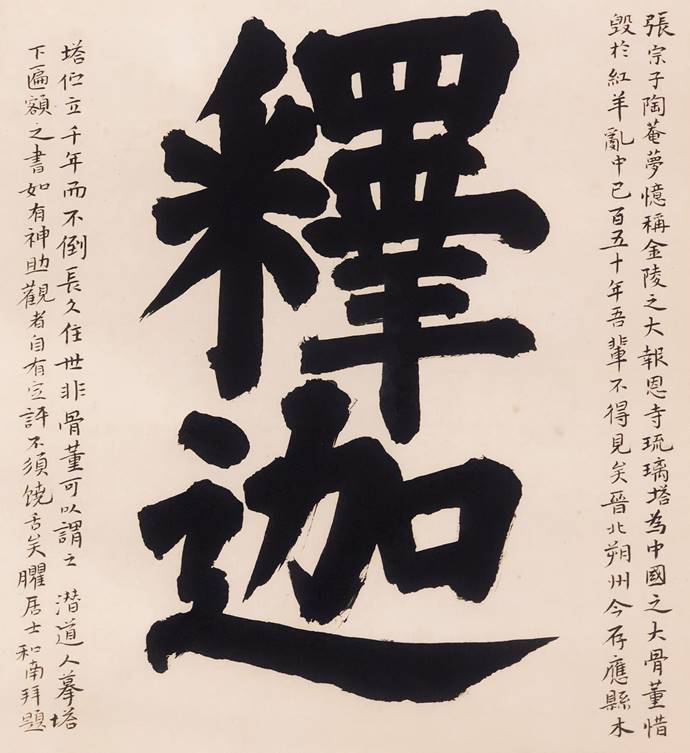 釋迦
張宗子陶菴夢憶稱金陵之大報恩寺琉璃塔為中國之大骨董惜
毀於紅羊亂中已百五十年吾輩不得見矣晉北朔州今存應縣木
塔伫立千年而不倒長久住世非骨董可以謂之 潜道人摹塔
下匾額之書如有神助觀者自有定評不須饒舌矣臞居士和南拜題